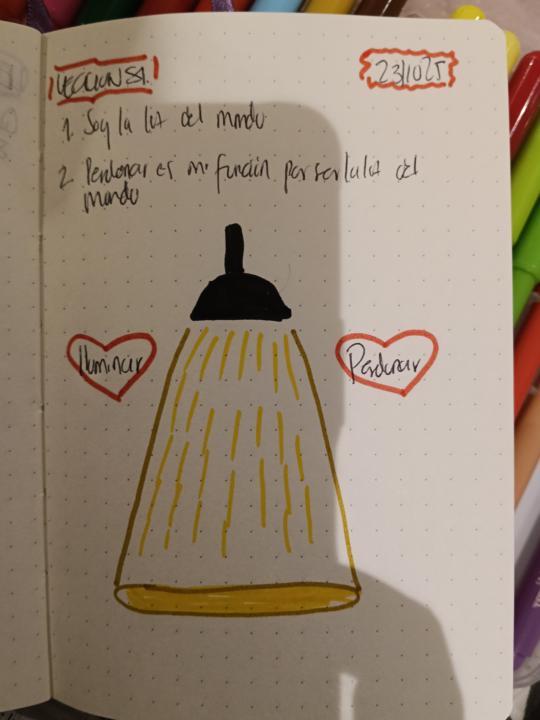 LECCION 81
23/10/25
1. Soy la luz del mundo
2. Perdonar es mi función por ser la luz del
mundo
Iluminar
Perdonar